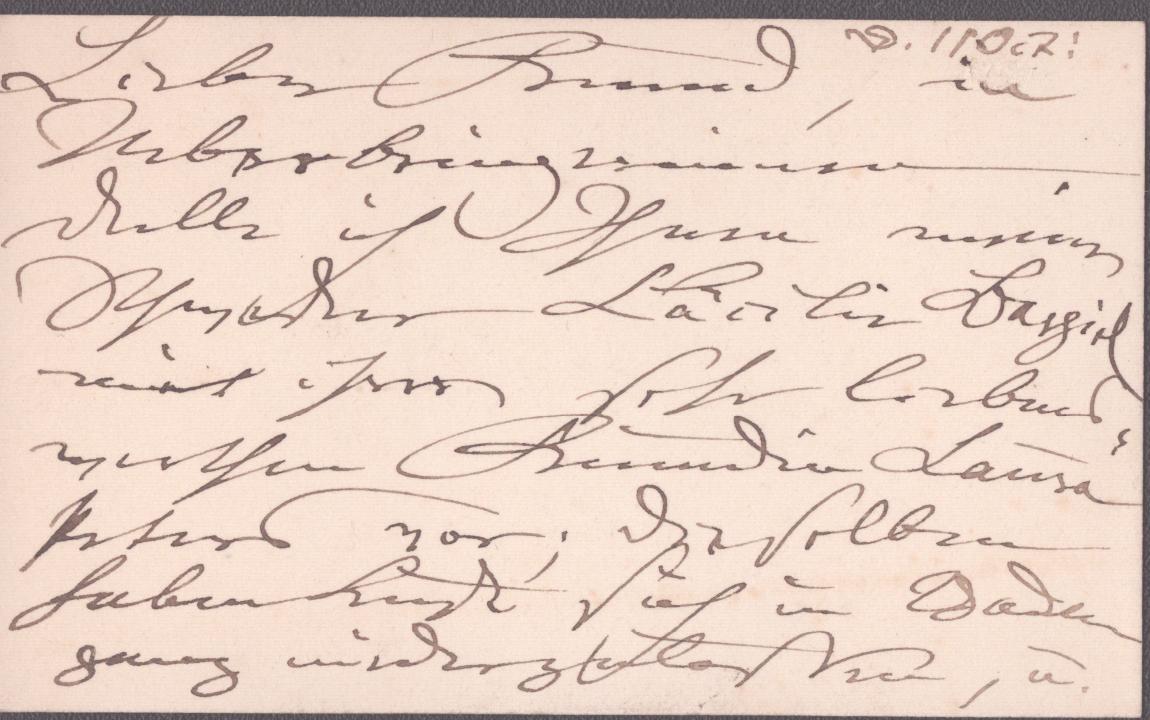 d. 11 Oct:
Lieber Freund, in
Ueberbringerinnen
stelle ich Ihnen meine
Schwester Cäcilie Bargiel
mit ihrer sehr liebens-
werthen Freundin Laura
vor; dieselben
haben Lust sich in Baden
ganz niederzulassen, u.